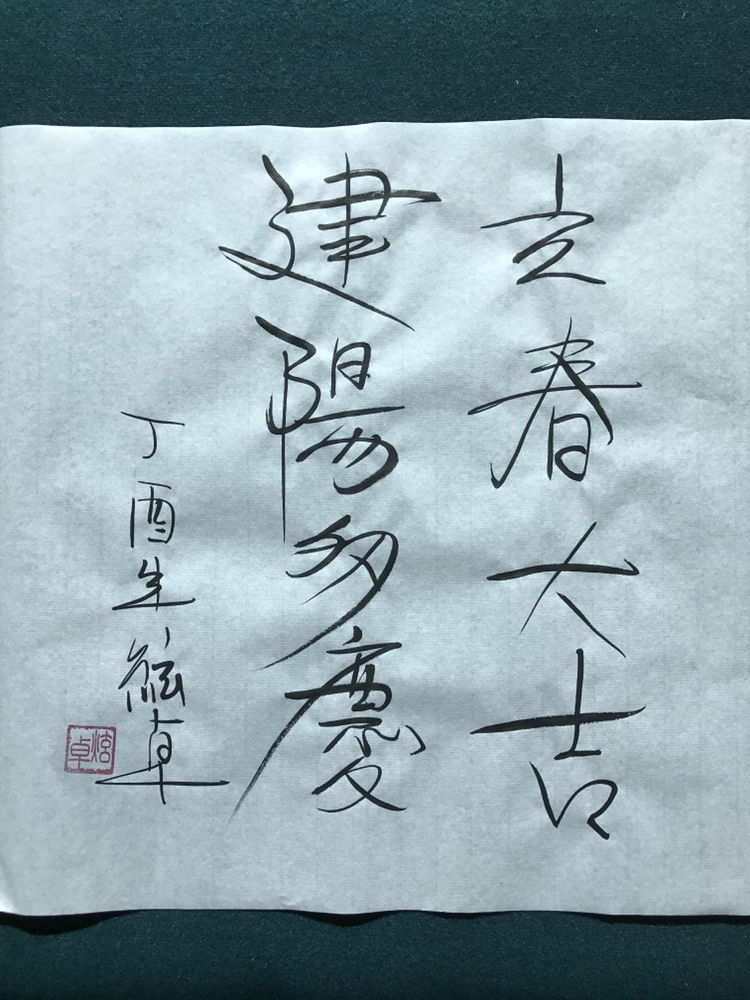 立春大吉
建陽多慶
丁酉年 炫卓
炫卓